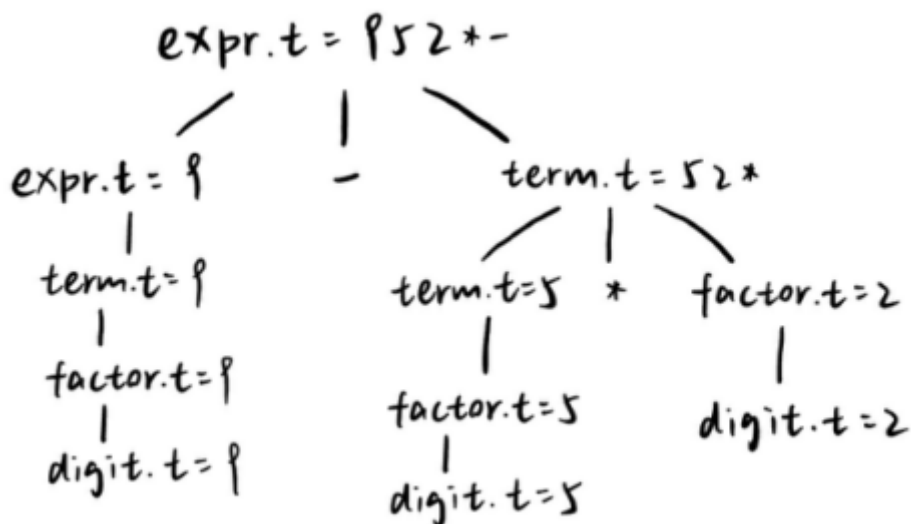 expr.t = 952*-
expr.t = 9 - term.t = 52*
term.t=9 term.t=5 * factor.t=2
factor.t=9 factor.t=5 digit.t=2
digit.t=9 digit.t=5